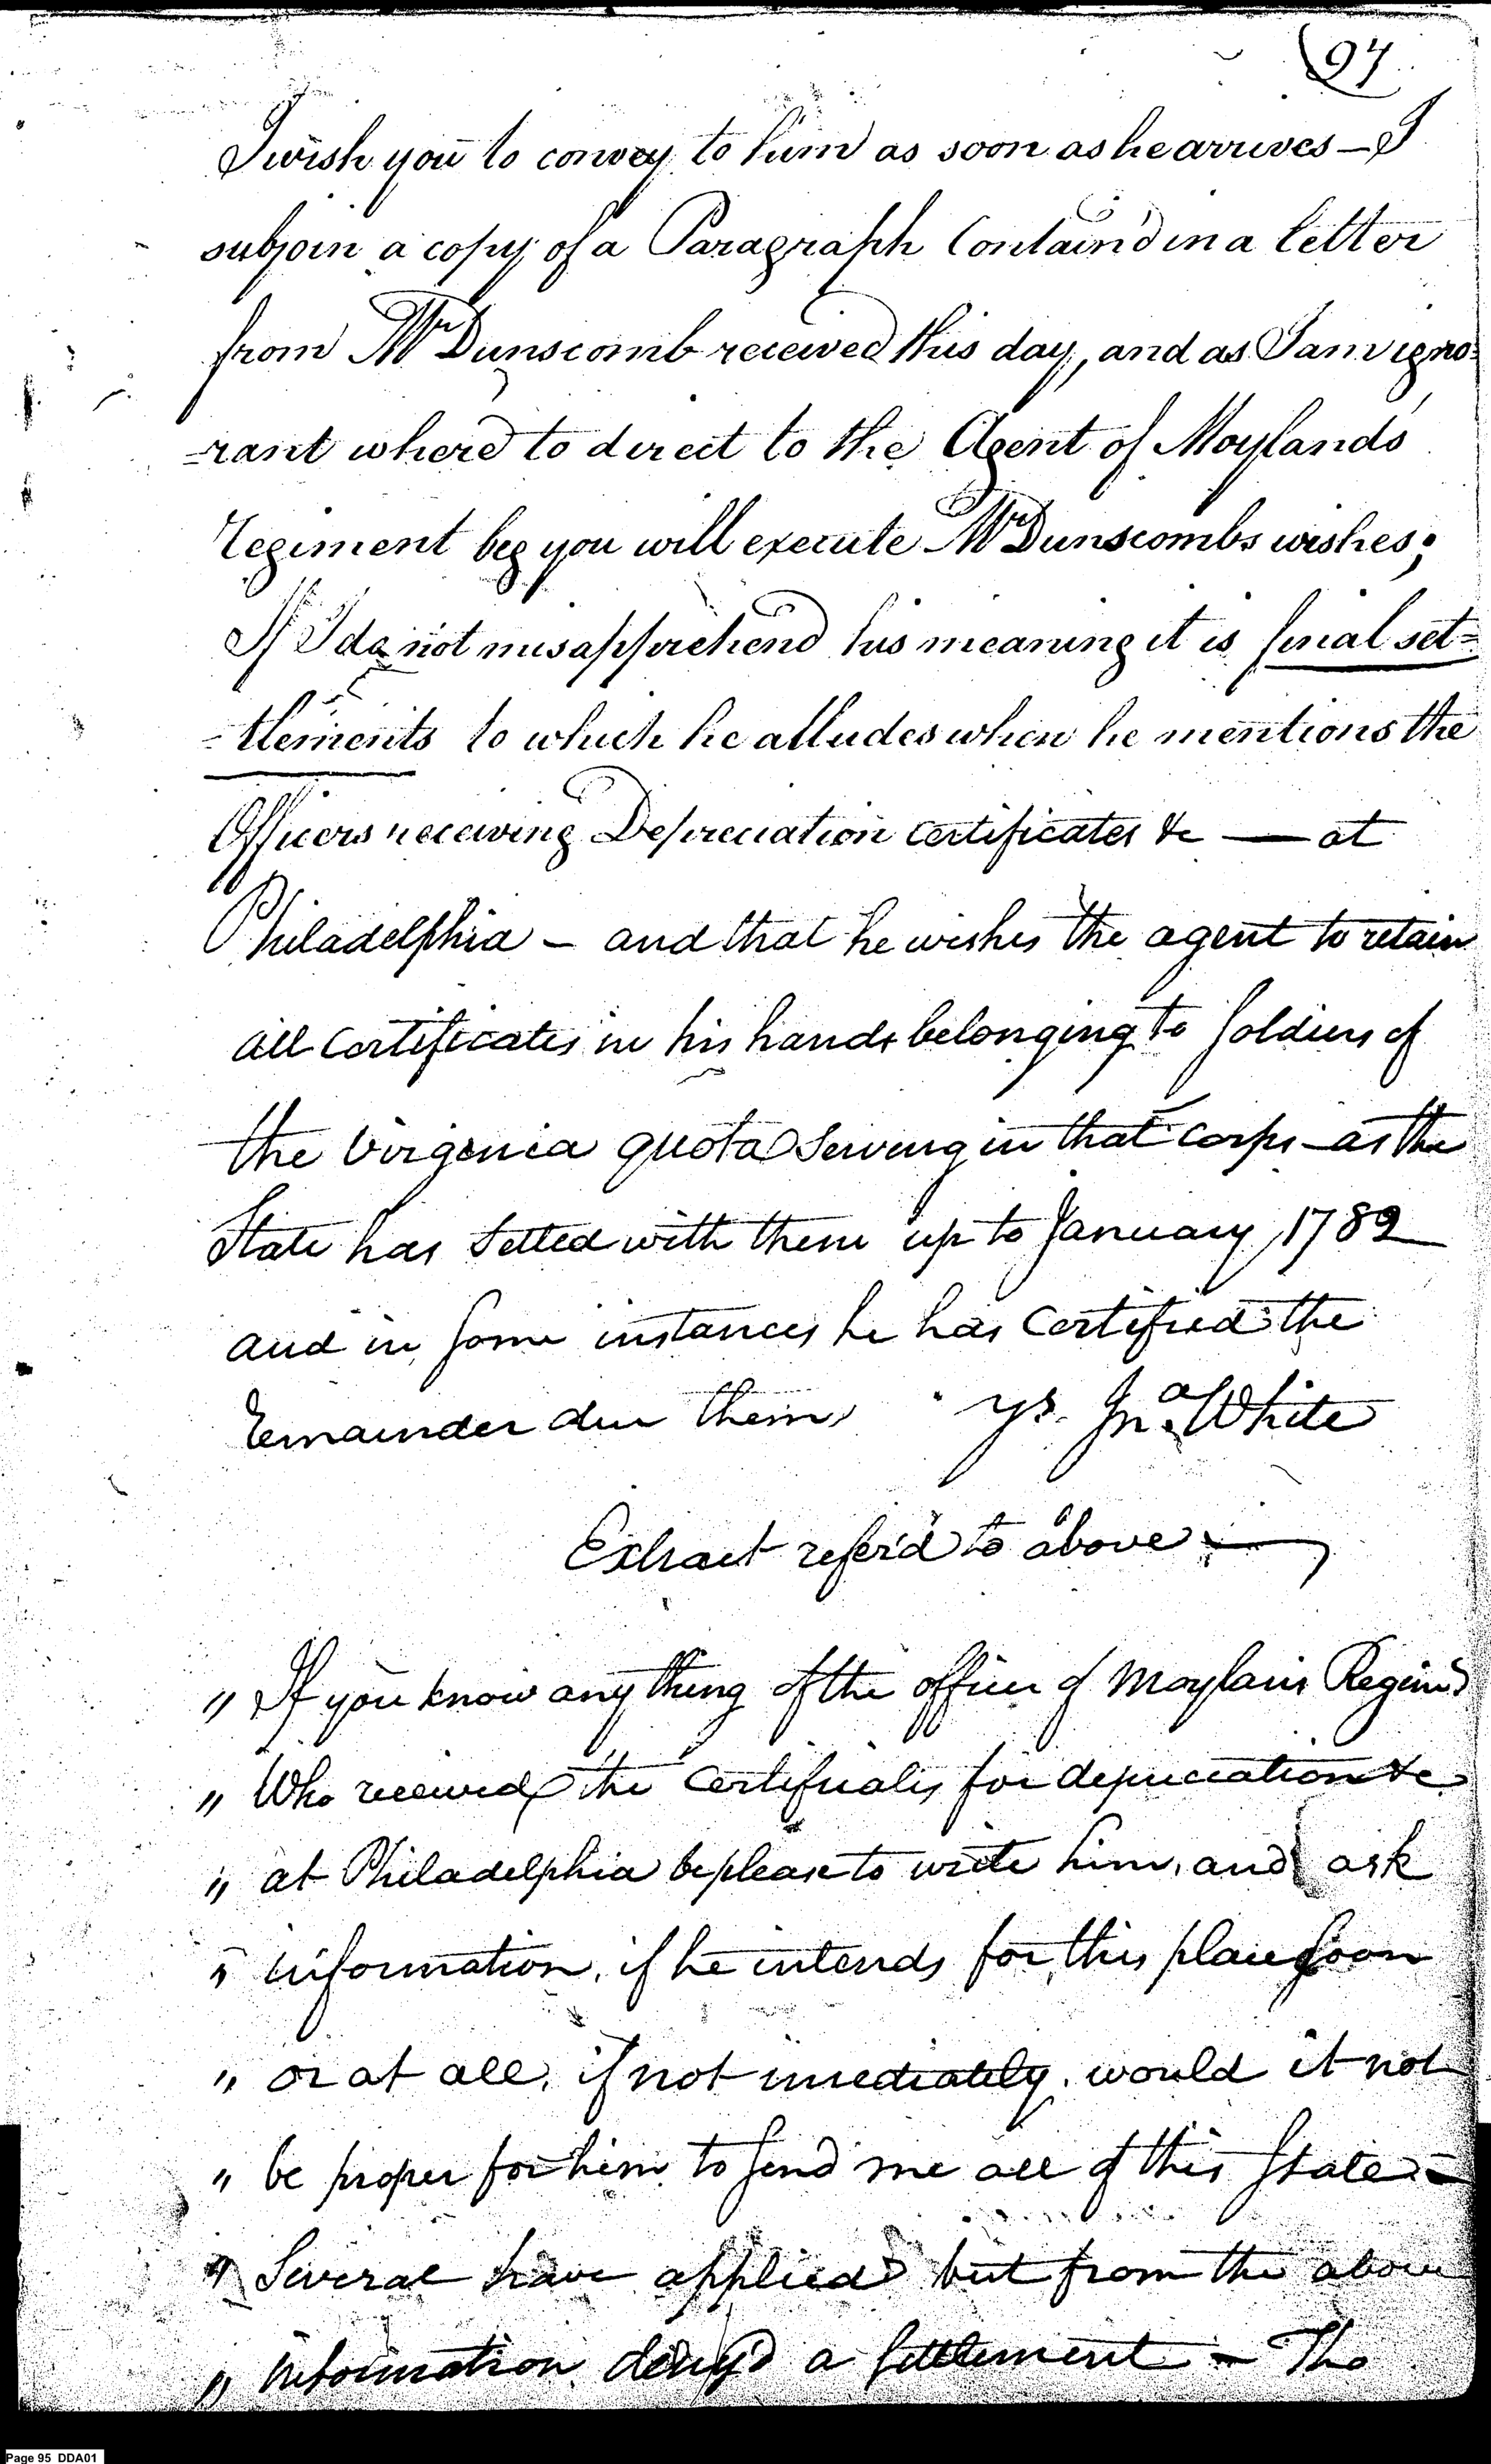 94
I wish you to convey to him as soon as he arrives — I
subjoin a copy of a Paragraph Contain'd in a letter
from Mr Dunscomb received this day, and as I am igno=
=rant where to direct to the Agent of Moylands
regiment beg you will execute Mr Dunscombs wishes;
If I do not misapprehend his meaning it is final set=
=tlements to which he alludes when he mentions the
Officers receiving Depreciation certificates &c — at
Philadelphia — and that he wishes the agent to retain
all Certificates in his hands belonging to Soldiers of
the Virginia quota Serving in that Corps — as the
State has Setled with them up to January 1782
and in Some instances he has Certified the
remainder due them ys. Jna. White
Extract refer'd to above —
" If you know any thing of the officer of Moylans Regimt
" Who received the Certificates for depreciation &c
" at Philadelphia be please to write him, and ask
" information, if he intends for this place Soon
" or at all, if not imediately, would it not
" be proper for him to Send me all of this State —
" Several have applied but from the above
" information deny'd a Settlement — The
Page 95 DDA01